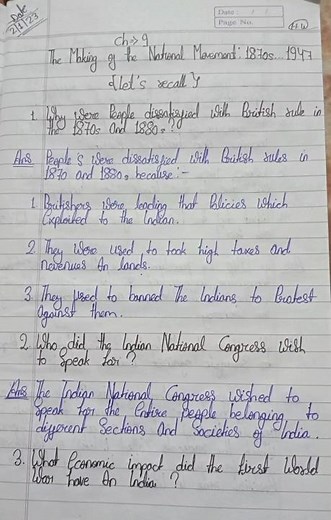 Date
2/1/23
Date :
Page No.
H.W
Ch → 9
The Making of the National Movement: 1870s... 1947
{Let's recall}
1. Why were People dissatisfied with British rule in
the 1870s and 1880s?
Ans People s were dissatisfied with British rules in
1870 and 1880s because :-
1. Britishers were leading that Policies which
Exploited to the Indian.
2. They were used to took high taxes and
revenues on lands.
3. They used to banned the Indians to Protest
against them.
2. Who did the Indian National Congress wish
to speak for ?
Ans The Indian National Congress wished to
speak for the Entire people belonging to
different Sections and Societies of India.
3. What Economic impact did the First World
War have on India ?